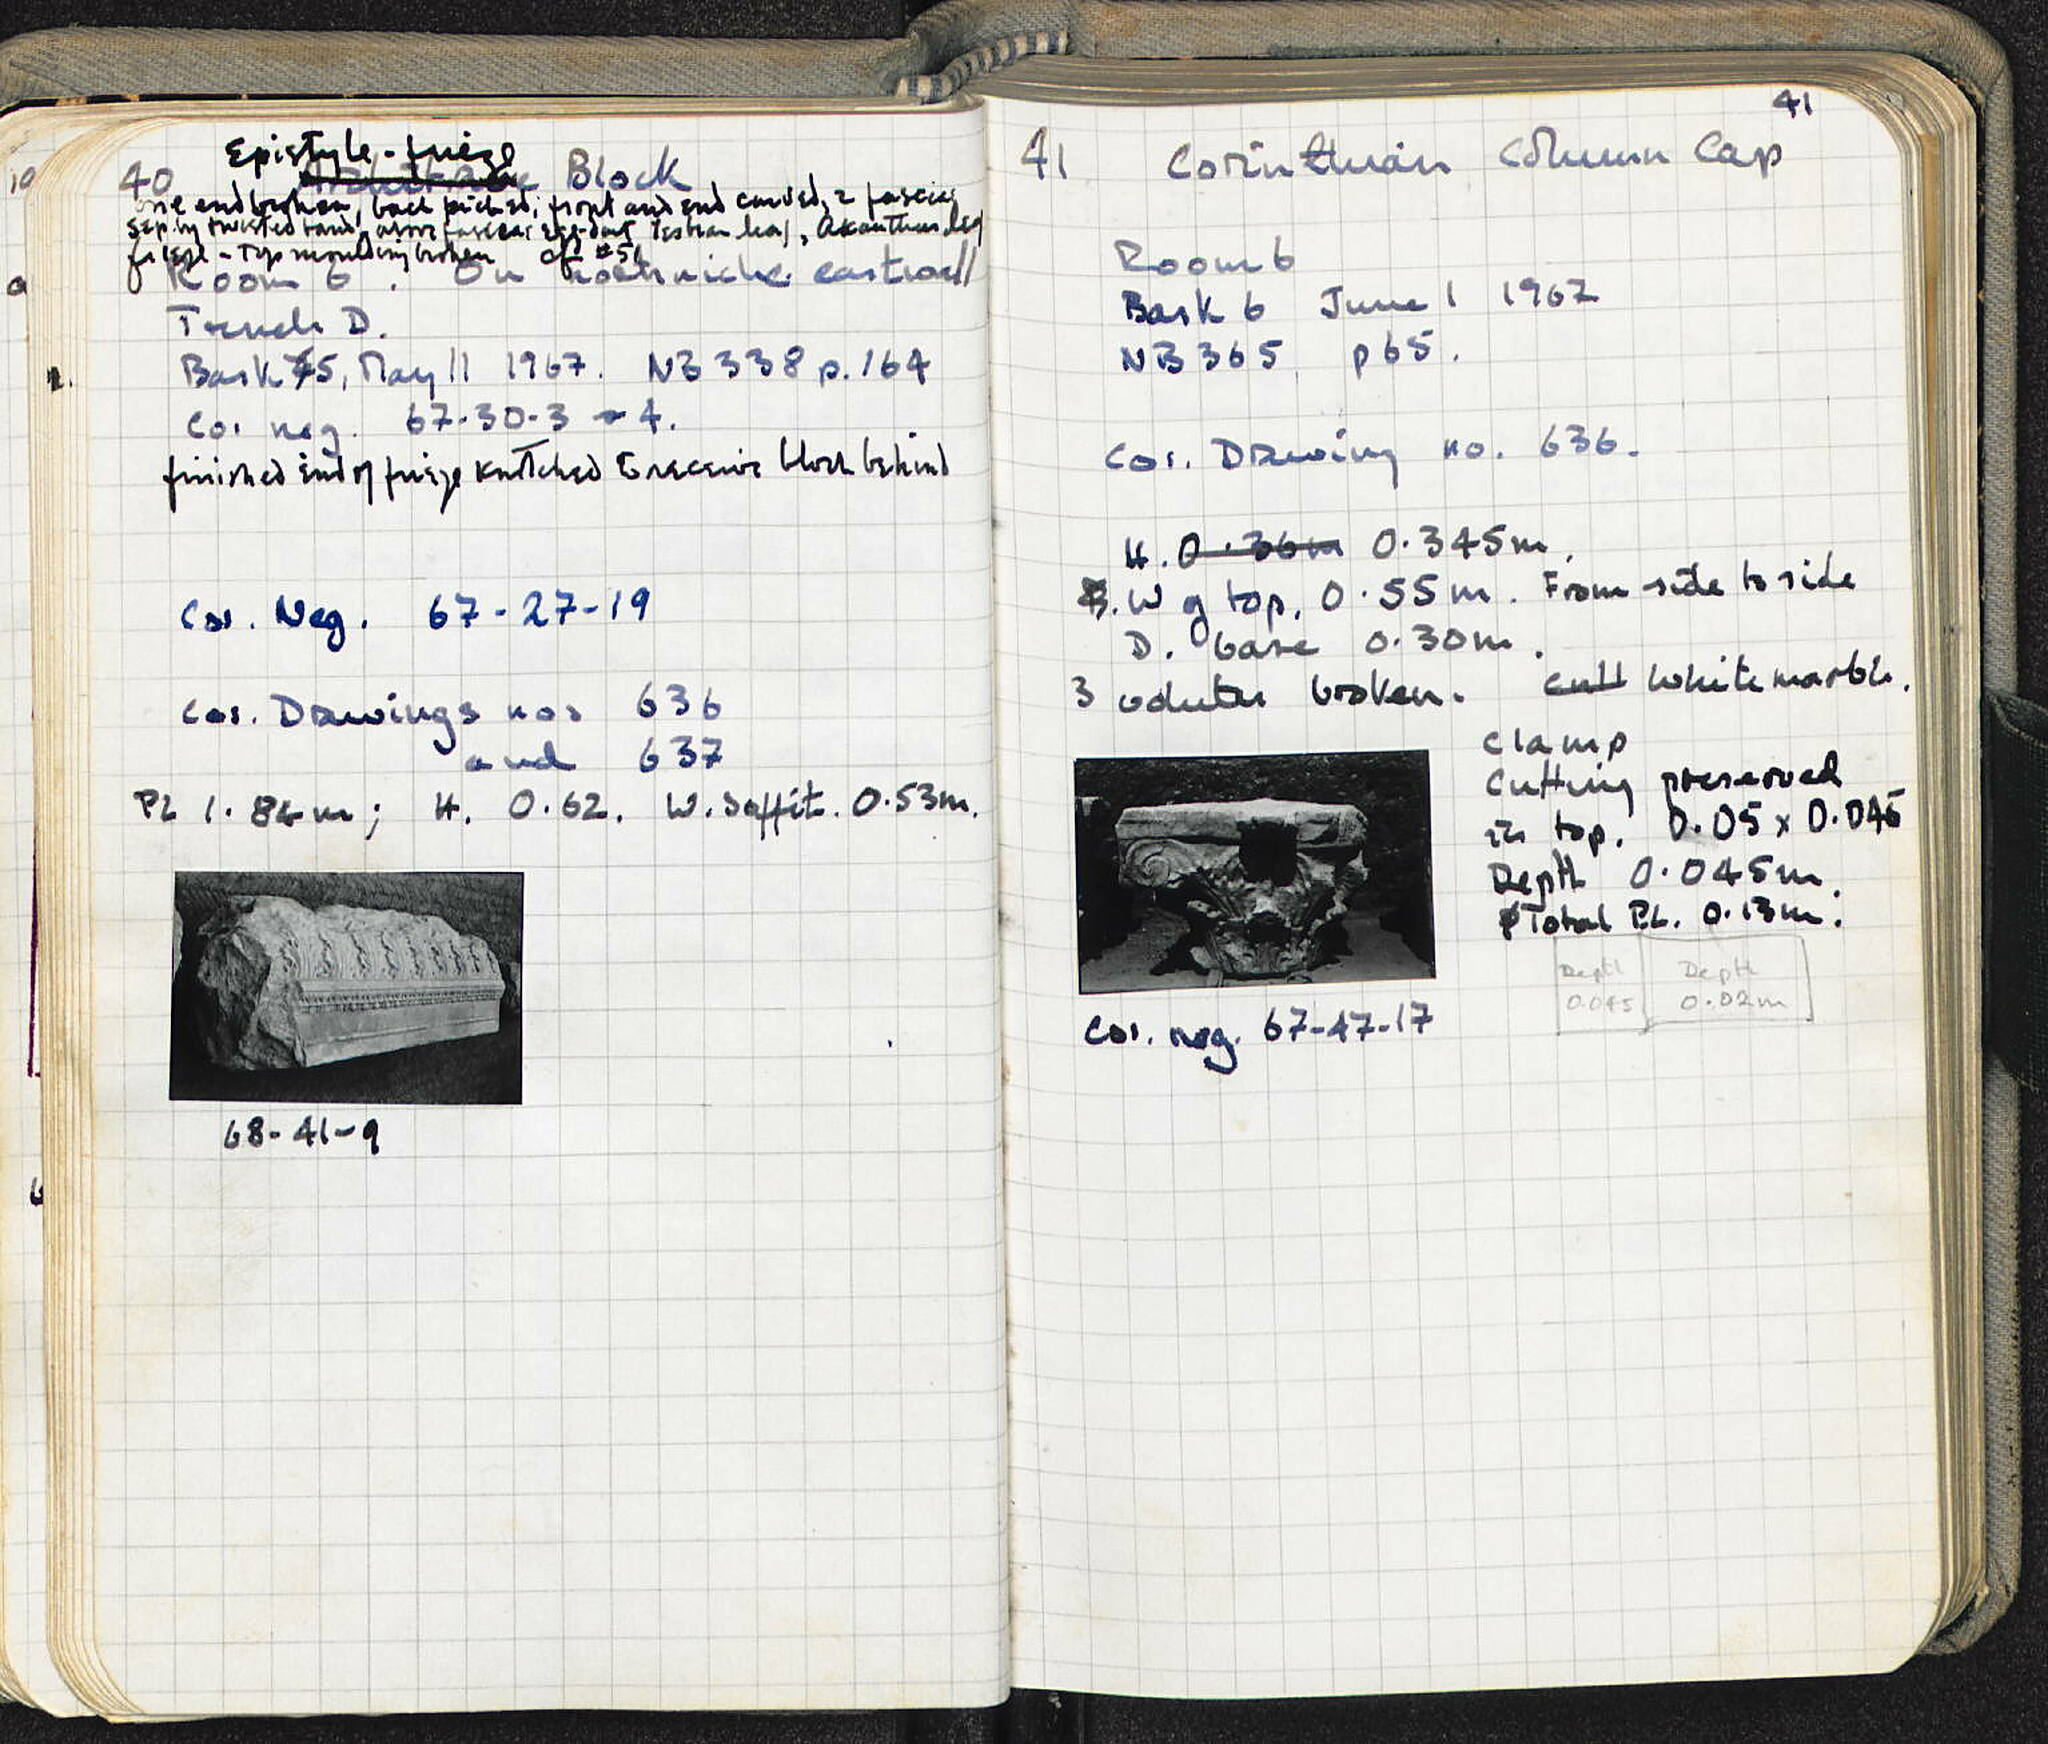 Epistyle - frieze
40 Block
one end broken, back picked, front and end carved, 2 fascias
sep. by twisted band, above fascias egg-dart, Lesbian leaf, Akanthus leaf
frieze - Top moulding broken cf # 51
Room 6. On north niche eastwall
Trench D.
Bask 5, May 11 1967. NB 338 p. 164
Cor neg. 67-30-3 - 4.
finished end of frieze notched to receive block behind
Cor. Neg. 67-27-19
Cor. Drawings nos 636
and 637
PL 1.84m; H. 0.62. W. Soffit. 0.53m.
68-41-9
41
41 Corinthian Column Cap
Room 6
Bask 6 June 1 1967
NB 365 p 65.
Cor. Drawing no. 636.
H. 0.36m 0.345m.
W of top. 0.55m. From side to side
D. base 0.30m.
3 volutes broken. White marble.
Clamp
Cutting preserved
in top. 0.05 x 0.045
Depth 0.045m.
Total P.L. 0.13m.
Depth Depth
0.045 0.02m
Cor. neg. 67-47-17